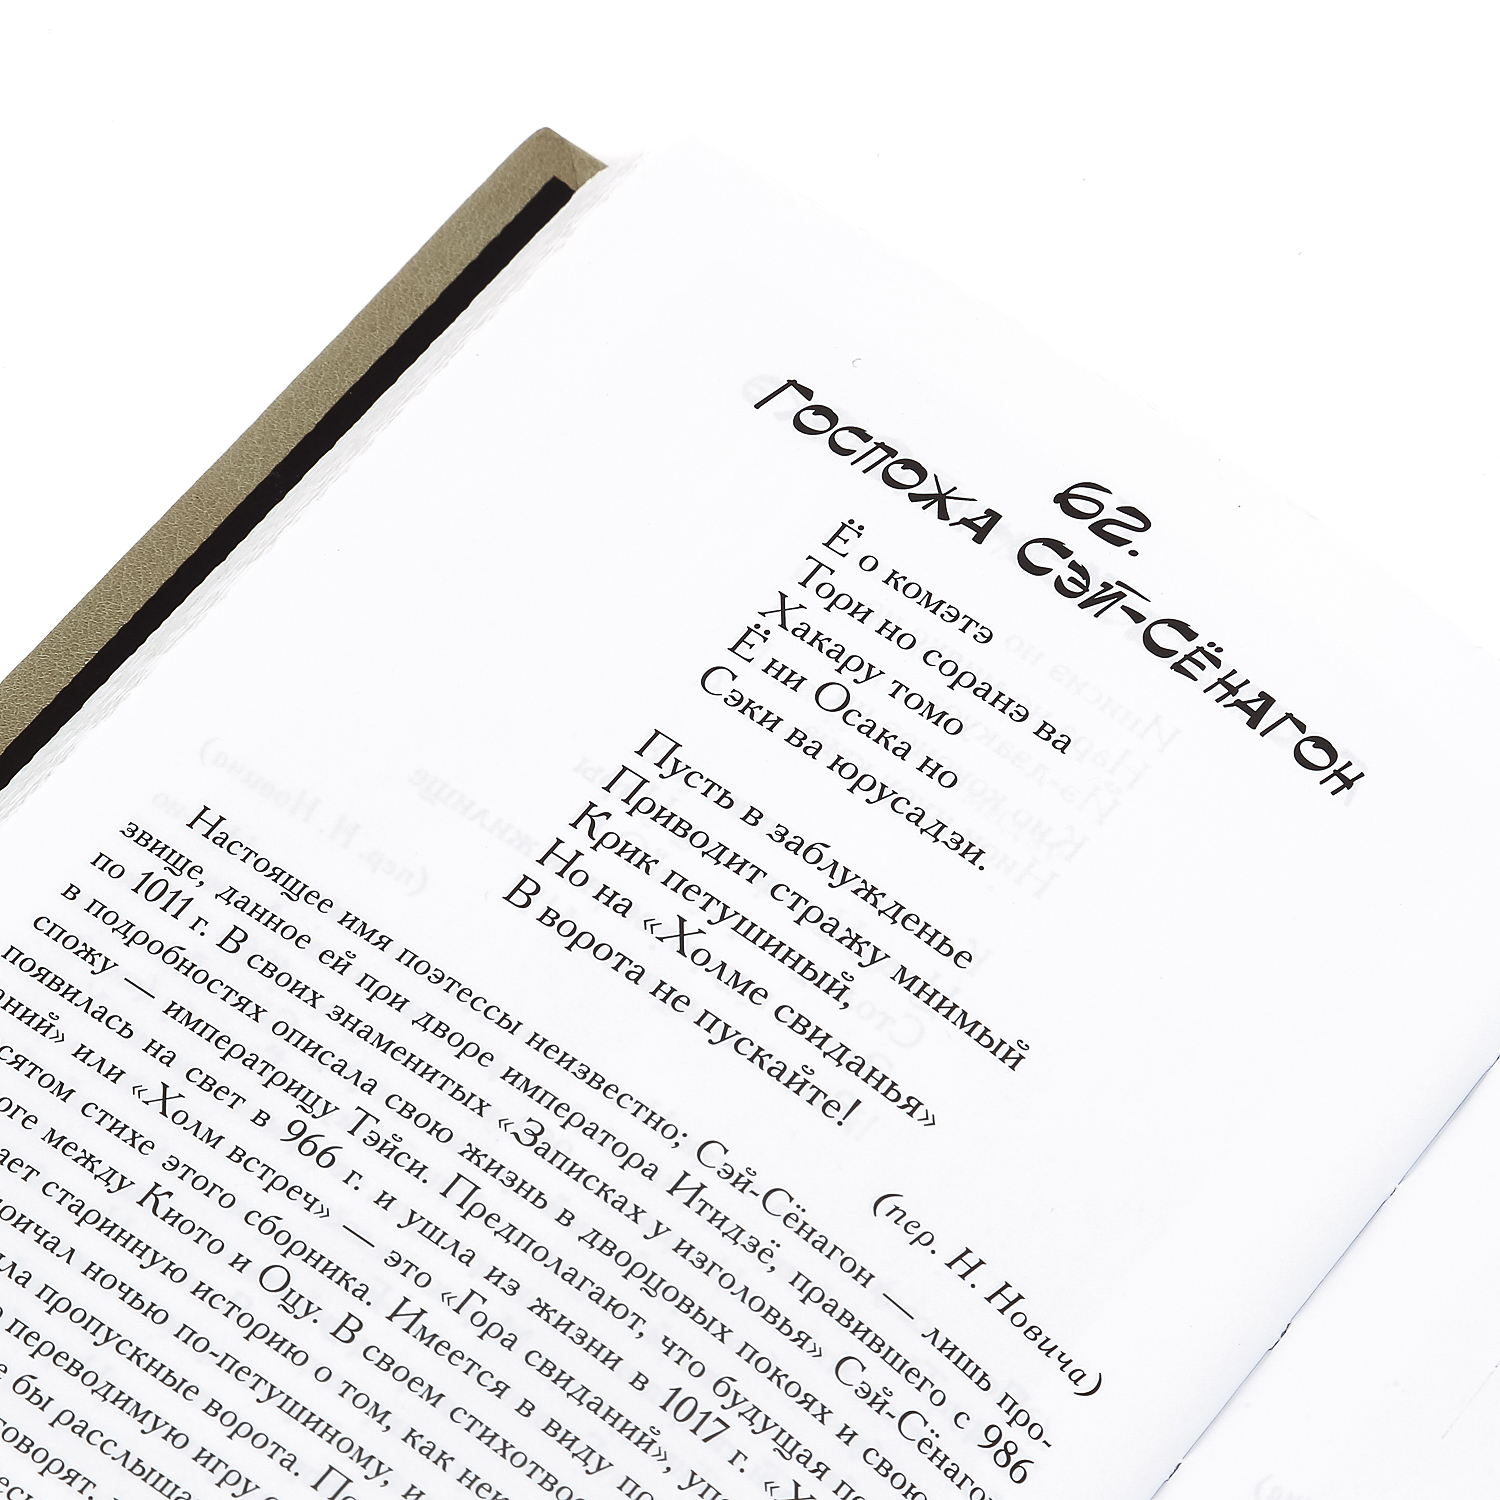 62.
ГОСПОЖА СЭЙ-СЁНАГОН
Ё о комэтэ
Тори но соранэ ва
Хакару томо
Ё ни Осака но
Сэки ва юрусадзи.
Пусть в заблужденье
Приводит стражу мнимый
Крик петушиный,
Но на «Холме свиданья»
В ворота не пускайте!
(пер. Н. Новича)
Настоящее имя поэтессы неизвестно; Сэй-Сёнагон — лишь про-
звище, данное ей при дворе императора Итидзё, правившего с 986
по 1011 г. В своих знаменитых «Записках у изголовья» Сэй-Сёнагон
в подробностях описала свою жизнь в дворцовых покоях и свою
спожу — императрицу Тэйси. Предполагают, что будущая
появилась на свет в 966 г. и ушла из жизни в 1017 г.
или «Холм встреч» — это «Гора свиданий»,
стихе этого сборника. Имеется в виду
между Киото и Оцу. В своем
старинную историю о том, как
ночью по-петушиному, и
пропускные ворота.
переводимую игру
бы
говорят,